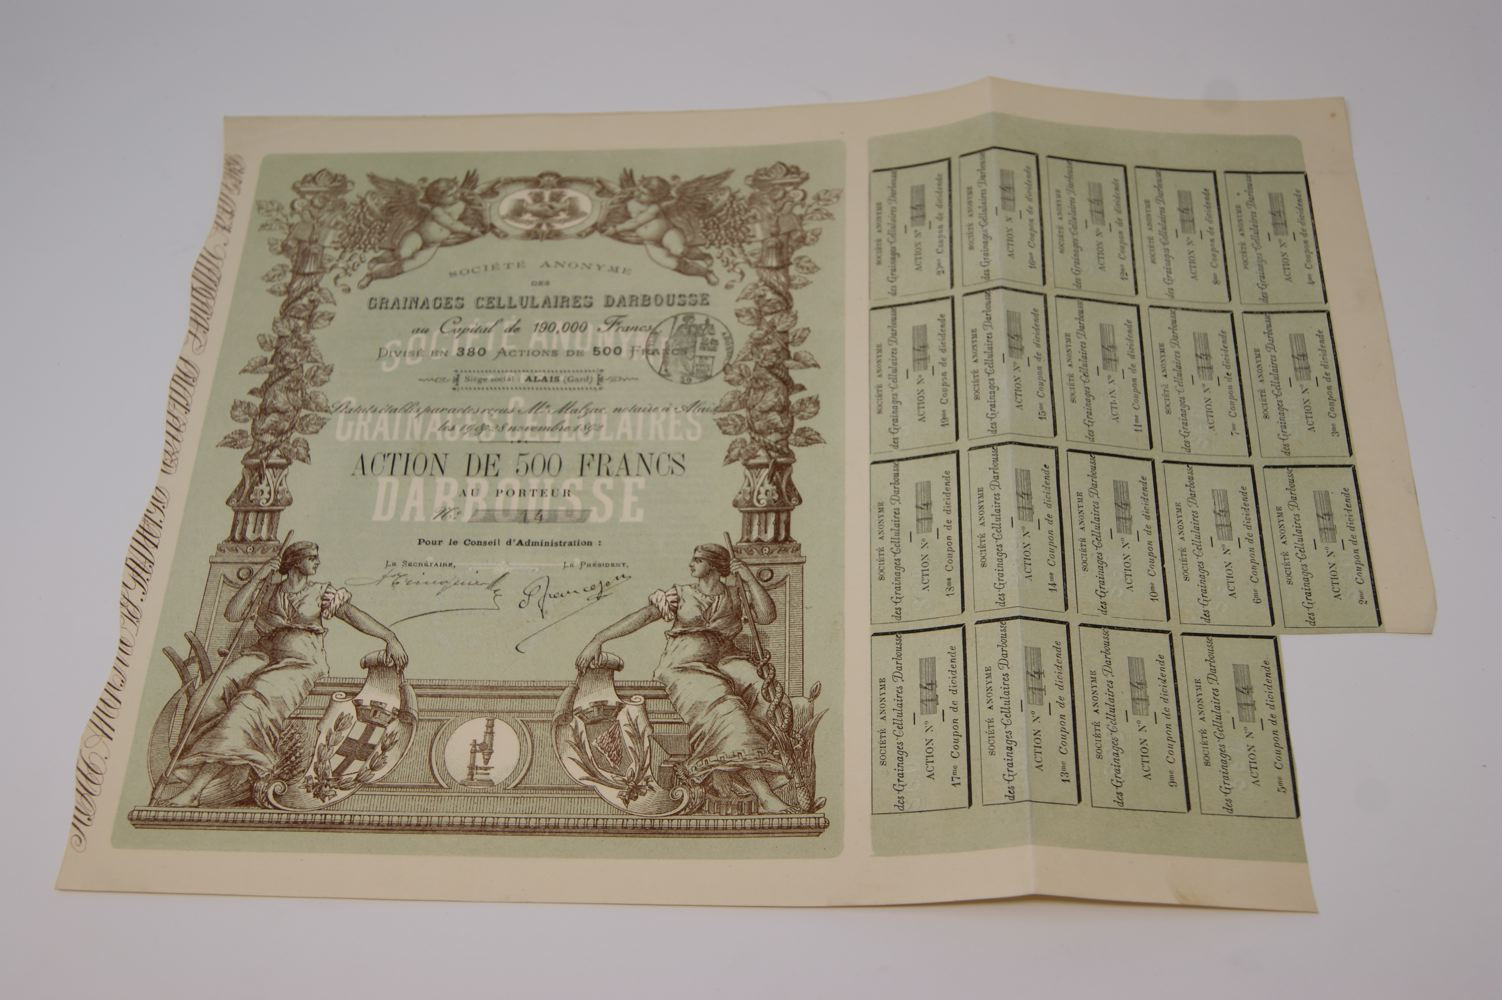 SOCIÉTÉ ANONYME
DES
GRAINAGES CELLULAIRES DARBOUSSE
au Capital de 190,000 Francs
DIVISÉ EN 380 ACTIONS DE 500 FRANCS
Siège social : ALAIS (Gard)
Statuts établis par actes reçus Me Malzac, notaire à Alais
SOCIÉTÉ ANONYME
GRAINAGES CELLULAIRES
DARBOUSSE
ACTION DE 500 FRANCS
AU PORTEUR
No 14
Pour le Conseil d'Administration :
LE SECRÉTAIRE, LE PRÉSIDENT,
SOCIÉTÉ ANONYME
des Grainages Cellulaires Darbousse
ACTION No 14
20me Coupon de dividende
SOCIÉTÉ ANONYME
des Grainages Cellulaires Darbousse
ACTION No 14
16me Coupon de dividende
SOCIÉTÉ ANONYME
des Grainages Cellulaires Darbousse
ACTION No 14
12me Coupon de dividende
SOCIÉTÉ ANONYME
des Grainages Cellulaires Darbousse
ACTION No 14
8me Coupon de dividende
SOCIÉTÉ ANONYME
des Grainages Cellulaires Darbousse
ACTION No 14
4me Coupon de dividende
SOCIÉTÉ ANONYME
des Grainages Cellulaires Darbousse
ACTION No 14
19me Coupon de dividende
SOCIÉTÉ ANONYME
des Grainages Cellulaires Darbousse
ACTION No 14
15me Coupon de dividende
SOCIÉTÉ ANONYME
des Grainages Cellulaires Darbousse
ACTION No 14
11me Coupon de dividende
SOCIÉTÉ ANONYME
des Grainages Cellulaires Darbousse
ACTION No 14
7me Coupon de dividende
SOCIÉTÉ ANONYME
des Grainages Cellulaires Darbousse
ACTION No 14
3me Coupon de dividende
SOCIÉTÉ ANONYME
des Grainages Cellulaires Darbousse
ACTION No 14
18me Coupon de dividende
SOCIÉTÉ ANONYME
des Grainages Cellulaires Darbousse
ACTION No 14
14me Coupon de dividende
SOCIÉTÉ ANONYME
des Grainages Cellulaires Darbousse
ACTION No 14
10me Coupon de dividende
SOCIÉTÉ ANONYME
des Grainages Cellulaires Darbousse
ACTION No 14
6me Coupon de dividende
SOCIÉTÉ ANONYME
des Grainages Cellulaires Darbousse
ACTION No 14
2me Coupon de dividende
SOCIÉTÉ ANONYME
des Grainages Cellulaires Darbousse
ACTION No 14
17me Coupon de dividende
SOCIÉTÉ ANONYME
des Grainages Cellulaires Darbousse
ACTION No 14
13me Coupon de dividende
SOCIÉTÉ ANONYME
des Grainages Cellulaires Darbousse
ACTION No 14
9me Coupon de dividende
SOCIÉTÉ ANONYME
des Grainages Cellulaires Darbousse
ACTION No 14
5me Coupon de dividende